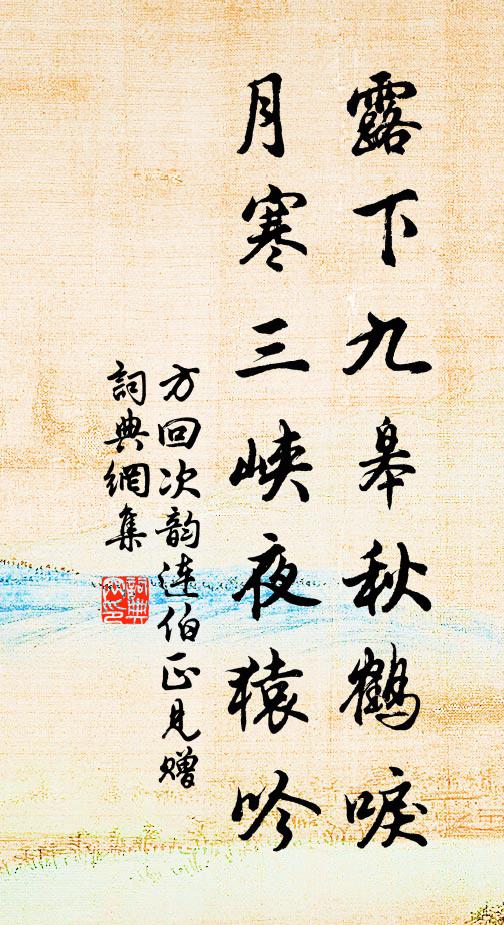 露下九皋秋鶴唳
月寒三峽夜猿吟
方回次韵達伯正見贈
詞典網集